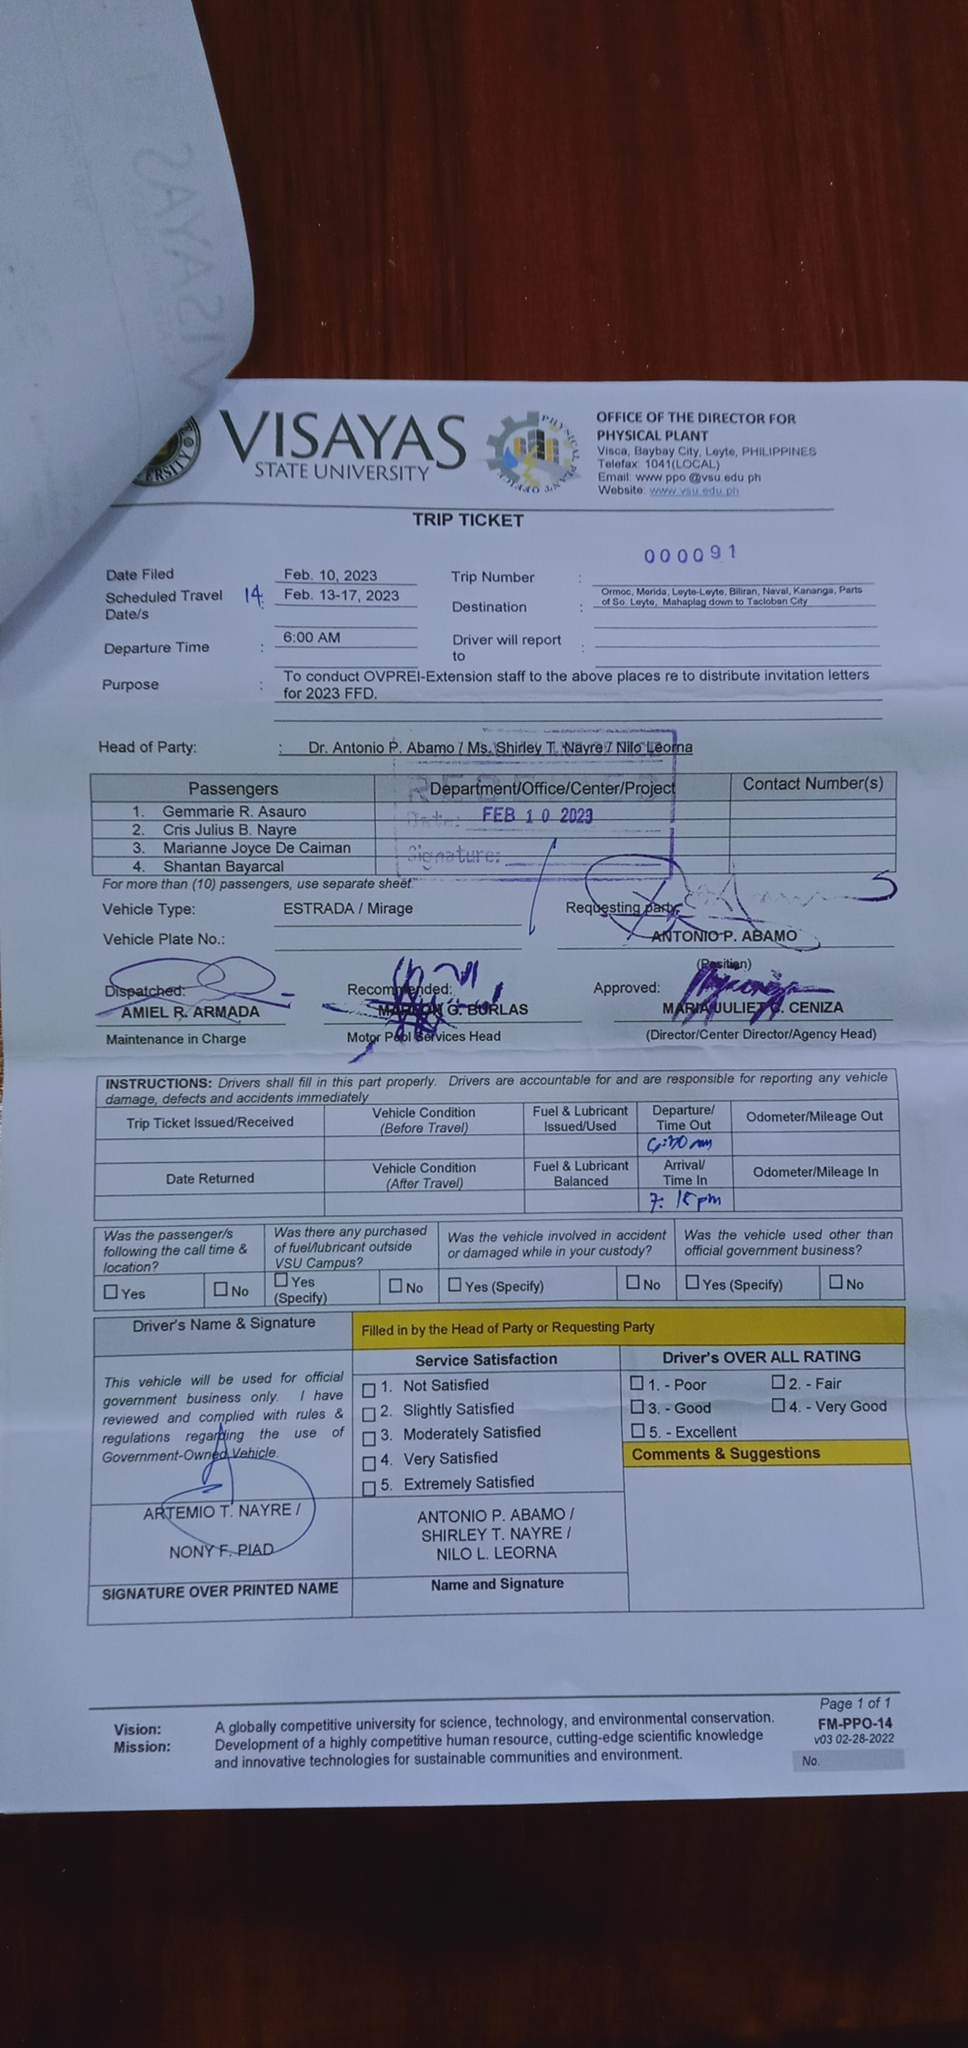 VISAYAS
STATE UNIVERSITY
OFFICE OF THE DIRECTOR FOR
PHYSICAL PLANT
Visca, Baybay City, Leyte, PHILIPPINES
Telefax: 1041(LOCAL)
Email: www ppo @vsu.edu ph
Website: www.vsu.edu.ph
TRIP TICKET
000091
Date Filed Feb. 10, 2023 Trip Number :
Scheduled Travel Date/s 14 : Feb. 13-17, 2023
Destination : Ormoc, Merida, Leyte-Leyte, Biliran, Naval, Kananga, Parts
of So. Leyte, Mahaplag down to Tacloban City
Departure Time : 6:00 AM Driver will report to :
Purpose : To conduct OVPREI-Extension staff to the above places re to distribute invitation letters
for 2023 FFD.
Head of Party: : Dr. Antonio P. Abamo / Ms. Shirley T. Nayre / Nilo Leorna
Passengers Department/Office/Center/Project Contact Number(s)
1. Gemmarie R. Asauro
2. Cris Julius B. Nayre
3. Marianne Joyce De Caiman
4. Shantan Bayarcal
Date: FEB 10 2023
Signature:
For more than (10) passengers, use separate sheet.
Vehicle Type: ESTRADA / Mirage Requesting party:
Vehicle Plate No.: ANTONIO P. ABAMO
(Position)
Dispatched: Recommended: Approved:
AMIEL R. ARMADA MARLON G. BURLAS MARIA JULIET C. CENIZA
Maintenance in Charge Motor Pool Services Head (Director/Center Director/Agency Head)
INSTRUCTIONS: Drivers shall fill in this part properly. Drivers are accountable for and are responsible for reporting any vehicle
damage, defects and accidents immediately
Trip Ticket Issued/Received Vehicle Condition (Before Travel) Fuel & Lubricant Issued/Used Departure/ Time Out Odometer/Mileage Out
6:30 am
Date Returned Vehicle Condition (After Travel) Fuel & Lubricant Balanced Arrival/ Time In Odometer/Mileage In
7:15 pm
Was the passenger/s following the call time & location? Was there any purchased of fuel/lubricant outside VSU Campus? Was the vehicle involved in accident or damaged while in your custody? Was the vehicle used other than official government business?
Yes No Yes (Specify) No Yes (Specify) No Yes (Specify) No
Driver's Name & Signature Filled in by the Head of Party or Requesting Party
Service Satisfaction Driver's OVER ALL RATING
This vehicle will be used for official
government business only. I have
reviewed and complied with rules &
regulations regarding the use of
Government-Owned Vehicle.
1. Not Satisfied
2. Slightly Satisfied
3. Moderately Satisfied
4. Very Satisfied
5. Extremely Satisfied
1. - Poor 2. - Fair
3. - Good 4. - Very Good
5. - Excellent
Comments & Suggestions
ARTEMIO T. NAYRE /
NONY F. PIAD
SIGNATURE OVER PRINTED NAME
ANTONIO P. ABAMO /
SHIRLEY T. NAYRE /
NILO L. LEORNA
Name and Signature
Page 1 of 1
FM-PPO-14
v03 02-28-2022
No.
Vision: A globally competitive university for science, technology, and environmental conservation.
Mission: Development of a highly competitive human resource, cutting-edge scientific knowledge
and innovative technologies for sustainable communities and environment.